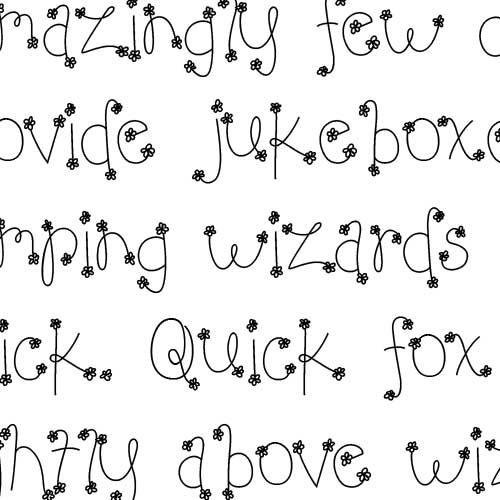 mazingly few
ovide jukeboxe
mping wizards
ick. Quick fox
htly above wi